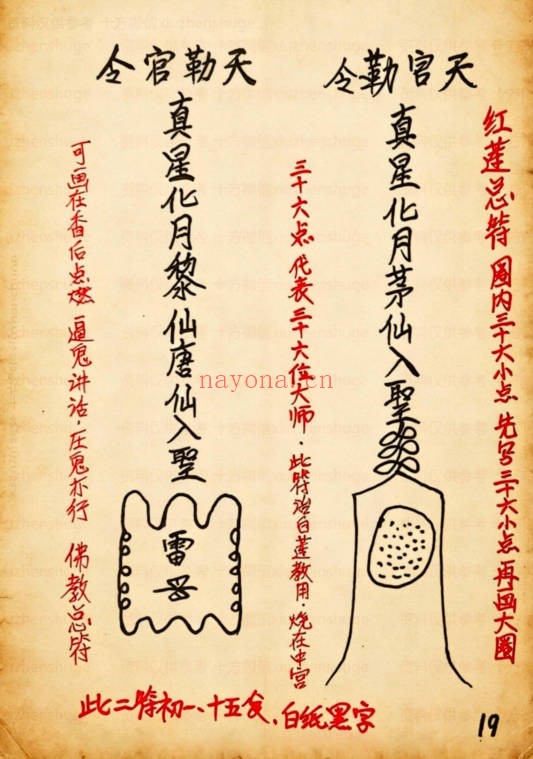 红莲总符 圈内三十六小点 先写三十六小点 再画大圈
天官勒令
真星化月茅仙入聖
三十六点代表三十六位大师.此符治白莲教用.烧在中宫
天勒官令
真星化月黎仙唐仙入聖
雷
可画在香后点燃 逼鬼讲话.压鬼亦行 佛教总符
此二符初一、十五食.白纸黑字
19
nayona.cn